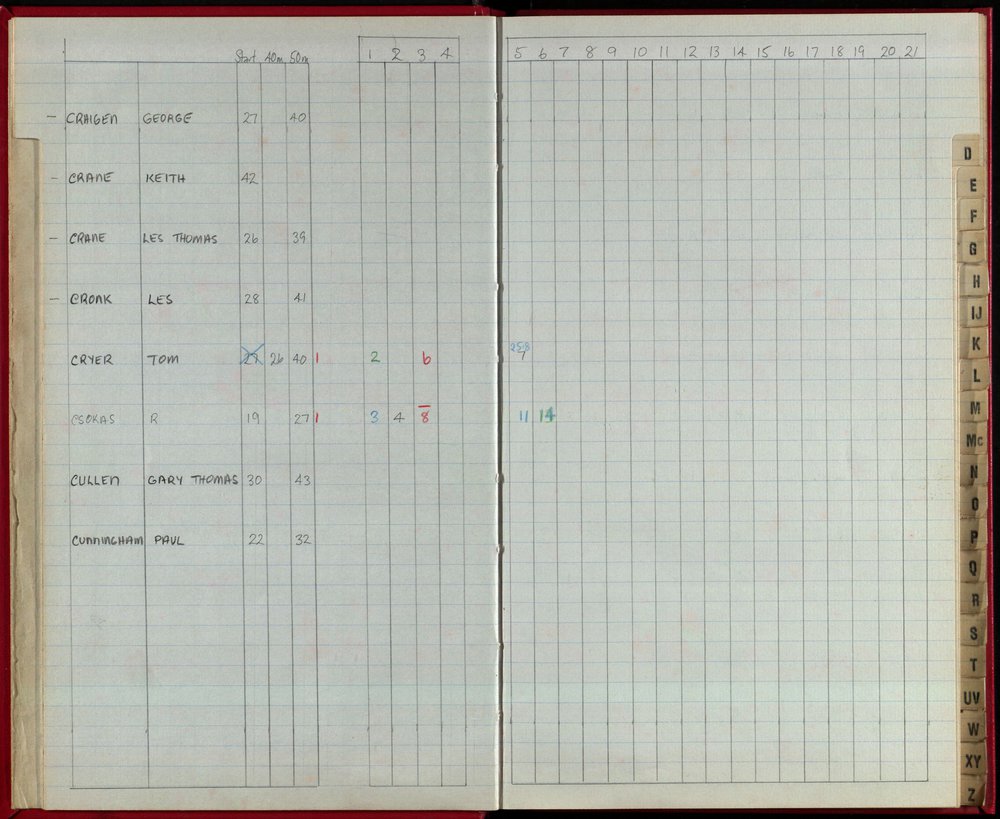 Start 40m 50m 1 2 3 4 5 6 7 8 9 10 11 12 13 14 15 16 17 18 19 20 21
– CRAIGEN GEORGE 27 40
– CRANE KEITH 42
– CRANE LES THOMAS 26 39
– CRONK LES 28 41
CRYER TOM 27 26 40 1 2 6 25.8 7
CSOKAS R 19 27 1 3 4 8 11 14
CULLEN GARY THOMAS 30 43
CUNNINGHAM PAUL 22 32
D
E
F
G
H
IJ
K
L
M
Mc
N
O
P
Q
R
S
T
UV
W
XY
Z